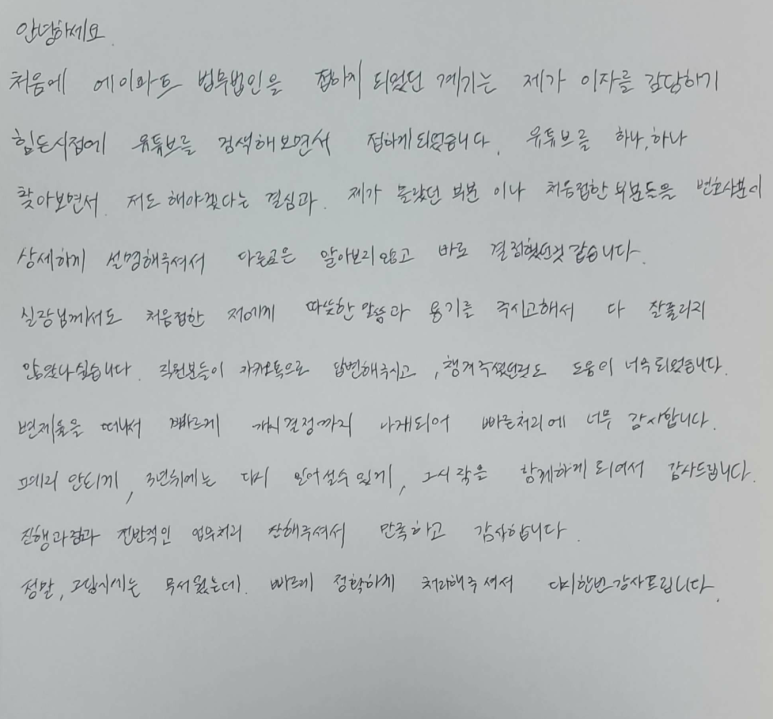 안녕하세요.
처음에 에이파트 법무법인을 접하게 되었던 계기는 제가 이자를 감당하기
힘든시점에 유튜브를 검색해보면서 접하게되었습니다. 유튜브를 하나,하나
찾아보면서 저도 해야겠다는 결심과. 제가 몰랐던 부분 이나 처음접한 부분들을 변호사분이
상세하게 설명해주셔서 다른곳은 알아보지 않고 바로 결정했던것 같습니다.
실장님께서도 처음접한 저에게 따뜻한 말씀과 용기를 주시고해서 다 잘풀리지
않았나싶습니다. 직원분들이 카카오톡으로 답변해주시고, 챙겨주셨던것도 도움이 너무되었습니다.
변제율을 떠나서 빠르게 개시결정까지 나게되어 빠른처리에 너무 감사합니다.
안되게, 3년뒤에는 다시 일어설수 있게, 그시작을 함께하게 되어서 감사드립니다.
진행과정과 전반적인 업무처리 잘해주셔서 만족하고 감사합니다.
정말, 무서웠는데. 빠르게 정확하게 처리해주셔서 다시한번감사드립니다.